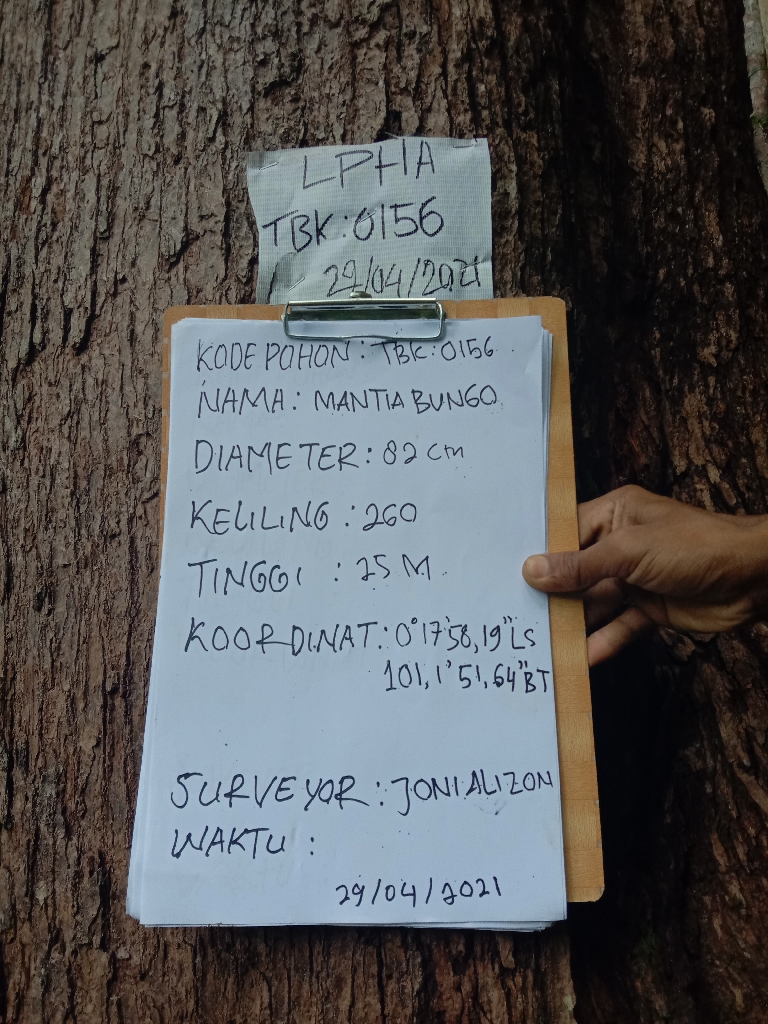 LPHA
TBK:0156
29/04/2021
KODE POHON : TBK:0156
NAMA : MANTIA BUNGO
DIAMETER : 82 cm
KELILING : 260
TINGGI : 25 M
KOORDINAT : 0°17'58,19" LS
101,1'51,64" BT
SURVEYOR : JONIALIZON
WAKTU :
29/04/2021